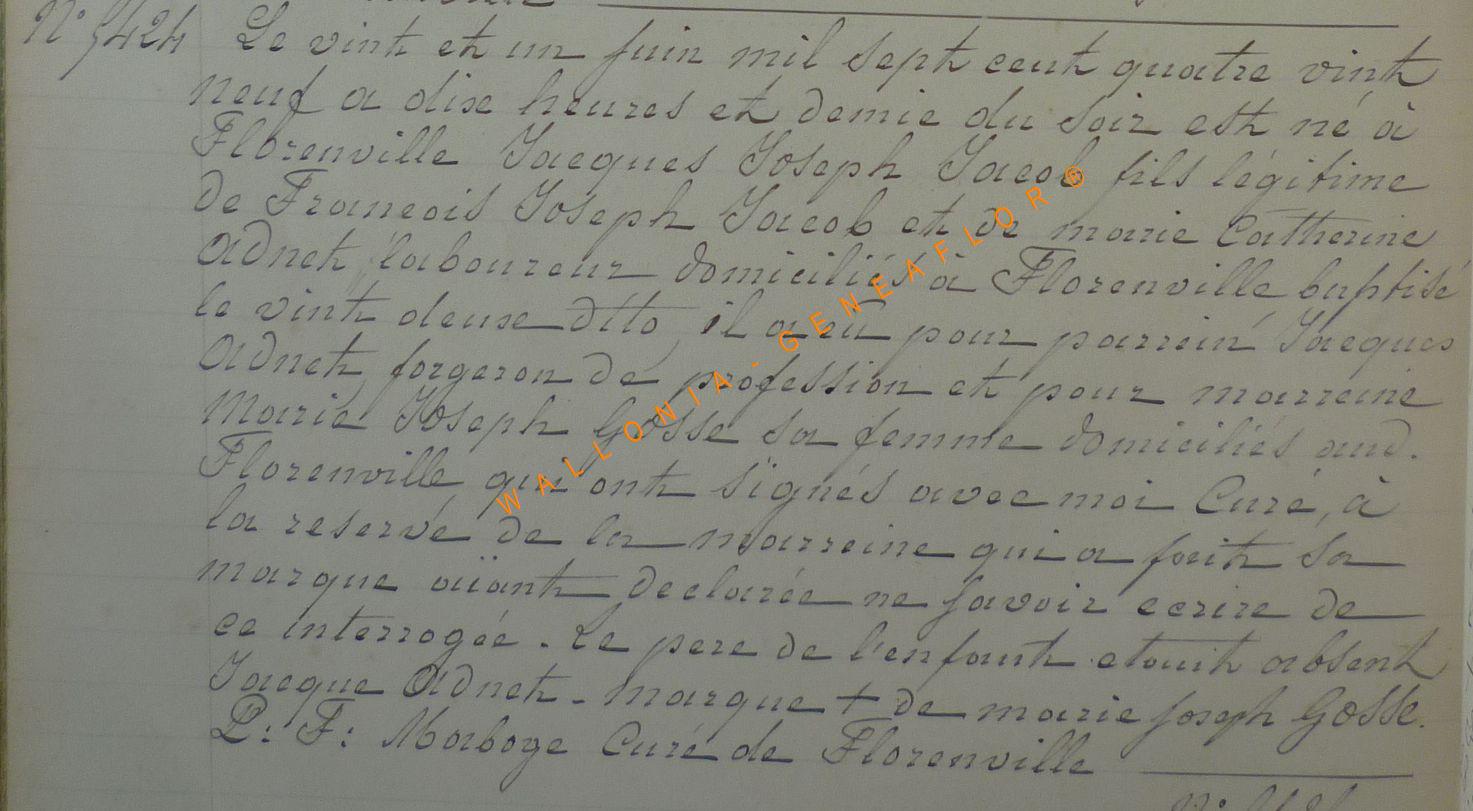 N° 5424 Le vint et un juin mil sept cent quatre vint
neuf a dixe heures et demie du soir est né à
Florenville Jacques Joseph Jacob fils légitime
de Francois Joseph Jacob et de marie Catherine
Adnet, laboureur domiciliés à Florenville baptisé
le vint deuxe dtto, il a eu pour parrein Jacques
Adnet, forgeron de profession et pour marreine
Marie Joseph Gosse sa femme domiciliés aud.
Florenville qui ont signés avec moi Curé, à
la reserve de la marreine qui a fait sa
marque aïant declarée ne savoir ecrire de
ce interrogée. Le pere de l'enfant etait absent
Jacque Adnet - marque + de marie joseph Gosse.
P: F: Maboge Curé de Florenville
WALLONIA - GENEAFLOR ®